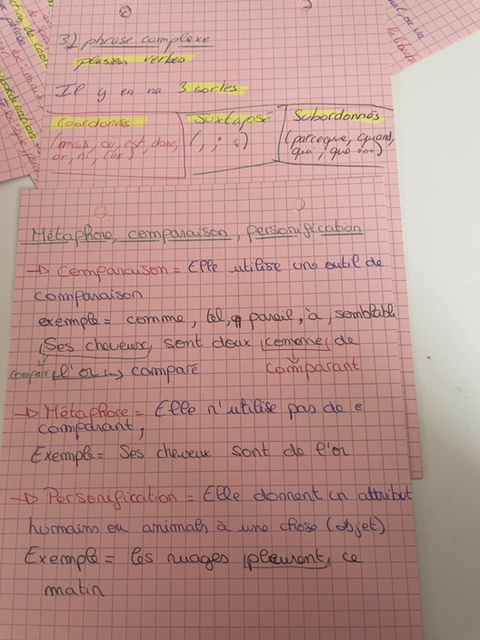 3) phrase complexe
plusieurs verbes
Il y en na 3 sortes
Coordonés
(mais, ou, est, donc,
or, ni, car)
Juxtaposé
(, ; :)
Subordonnés
(parceque, quand,
qui, que ...)
Métaphore, comparaison, personification
→ Comparaison = Elle utilise un outil de
comparaison
exemple = comme, tel, pareil, à, semblable
Ses cheveux, sont doux comme de
l'or → comparé
comparant
→ Métaphore = Elle n'utilise pas de
comparant,
Exemple = Ses cheveux sont de l'or
→ Personification = Elle donnent un attribut
humains ou animals à une chose (objet)
Exemple = les nuages pleurent, ce
matin